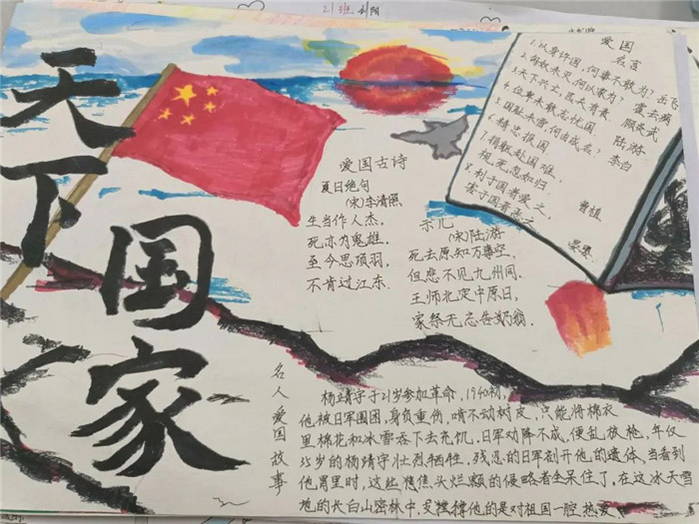 21班 刘阳
天下
国家
爱国
名言
1.以身许国,何事不敢为?岳飞
2.匈奴未灭,何以家为?霍去病
3.天下兴亡,匹夫有责 顾炎武
4.位卑未敢忘忧国. 陆游
5.国耻未雪,何由成名?李白
6.精忠报国.
7.捐躯赴国难,
视死忽如归 曹植
8.利于国者爱之,
害于国者恶之 晏婴
爱国古诗
夏日绝句
(宋)李清照
生当作人杰,
死亦为鬼雄.
至今思项羽,
不肯过江东.
示儿
(宋)陆游
死去原知万事空,
但悲不见九州同.
王师北定中原日,
家祭无忘告乃翁.
名人爱国故事
杨靖宇于21岁参加革命,1940初,
他被日军围困,身负重伤,啃不动树皮,只能将棉衣
里棉花和冰雪吞下去充饥,日军劝降不成,便乱放枪,年仅
35岁的杨靖宇壮烈牺牲,残忍的日军剖开他的遗体,当看到
他胃里时,这些焦头烂额的侵略者全呆住了,在这冰天雪
地的长白山密林中,支撑他的是对祖国一腔热爱